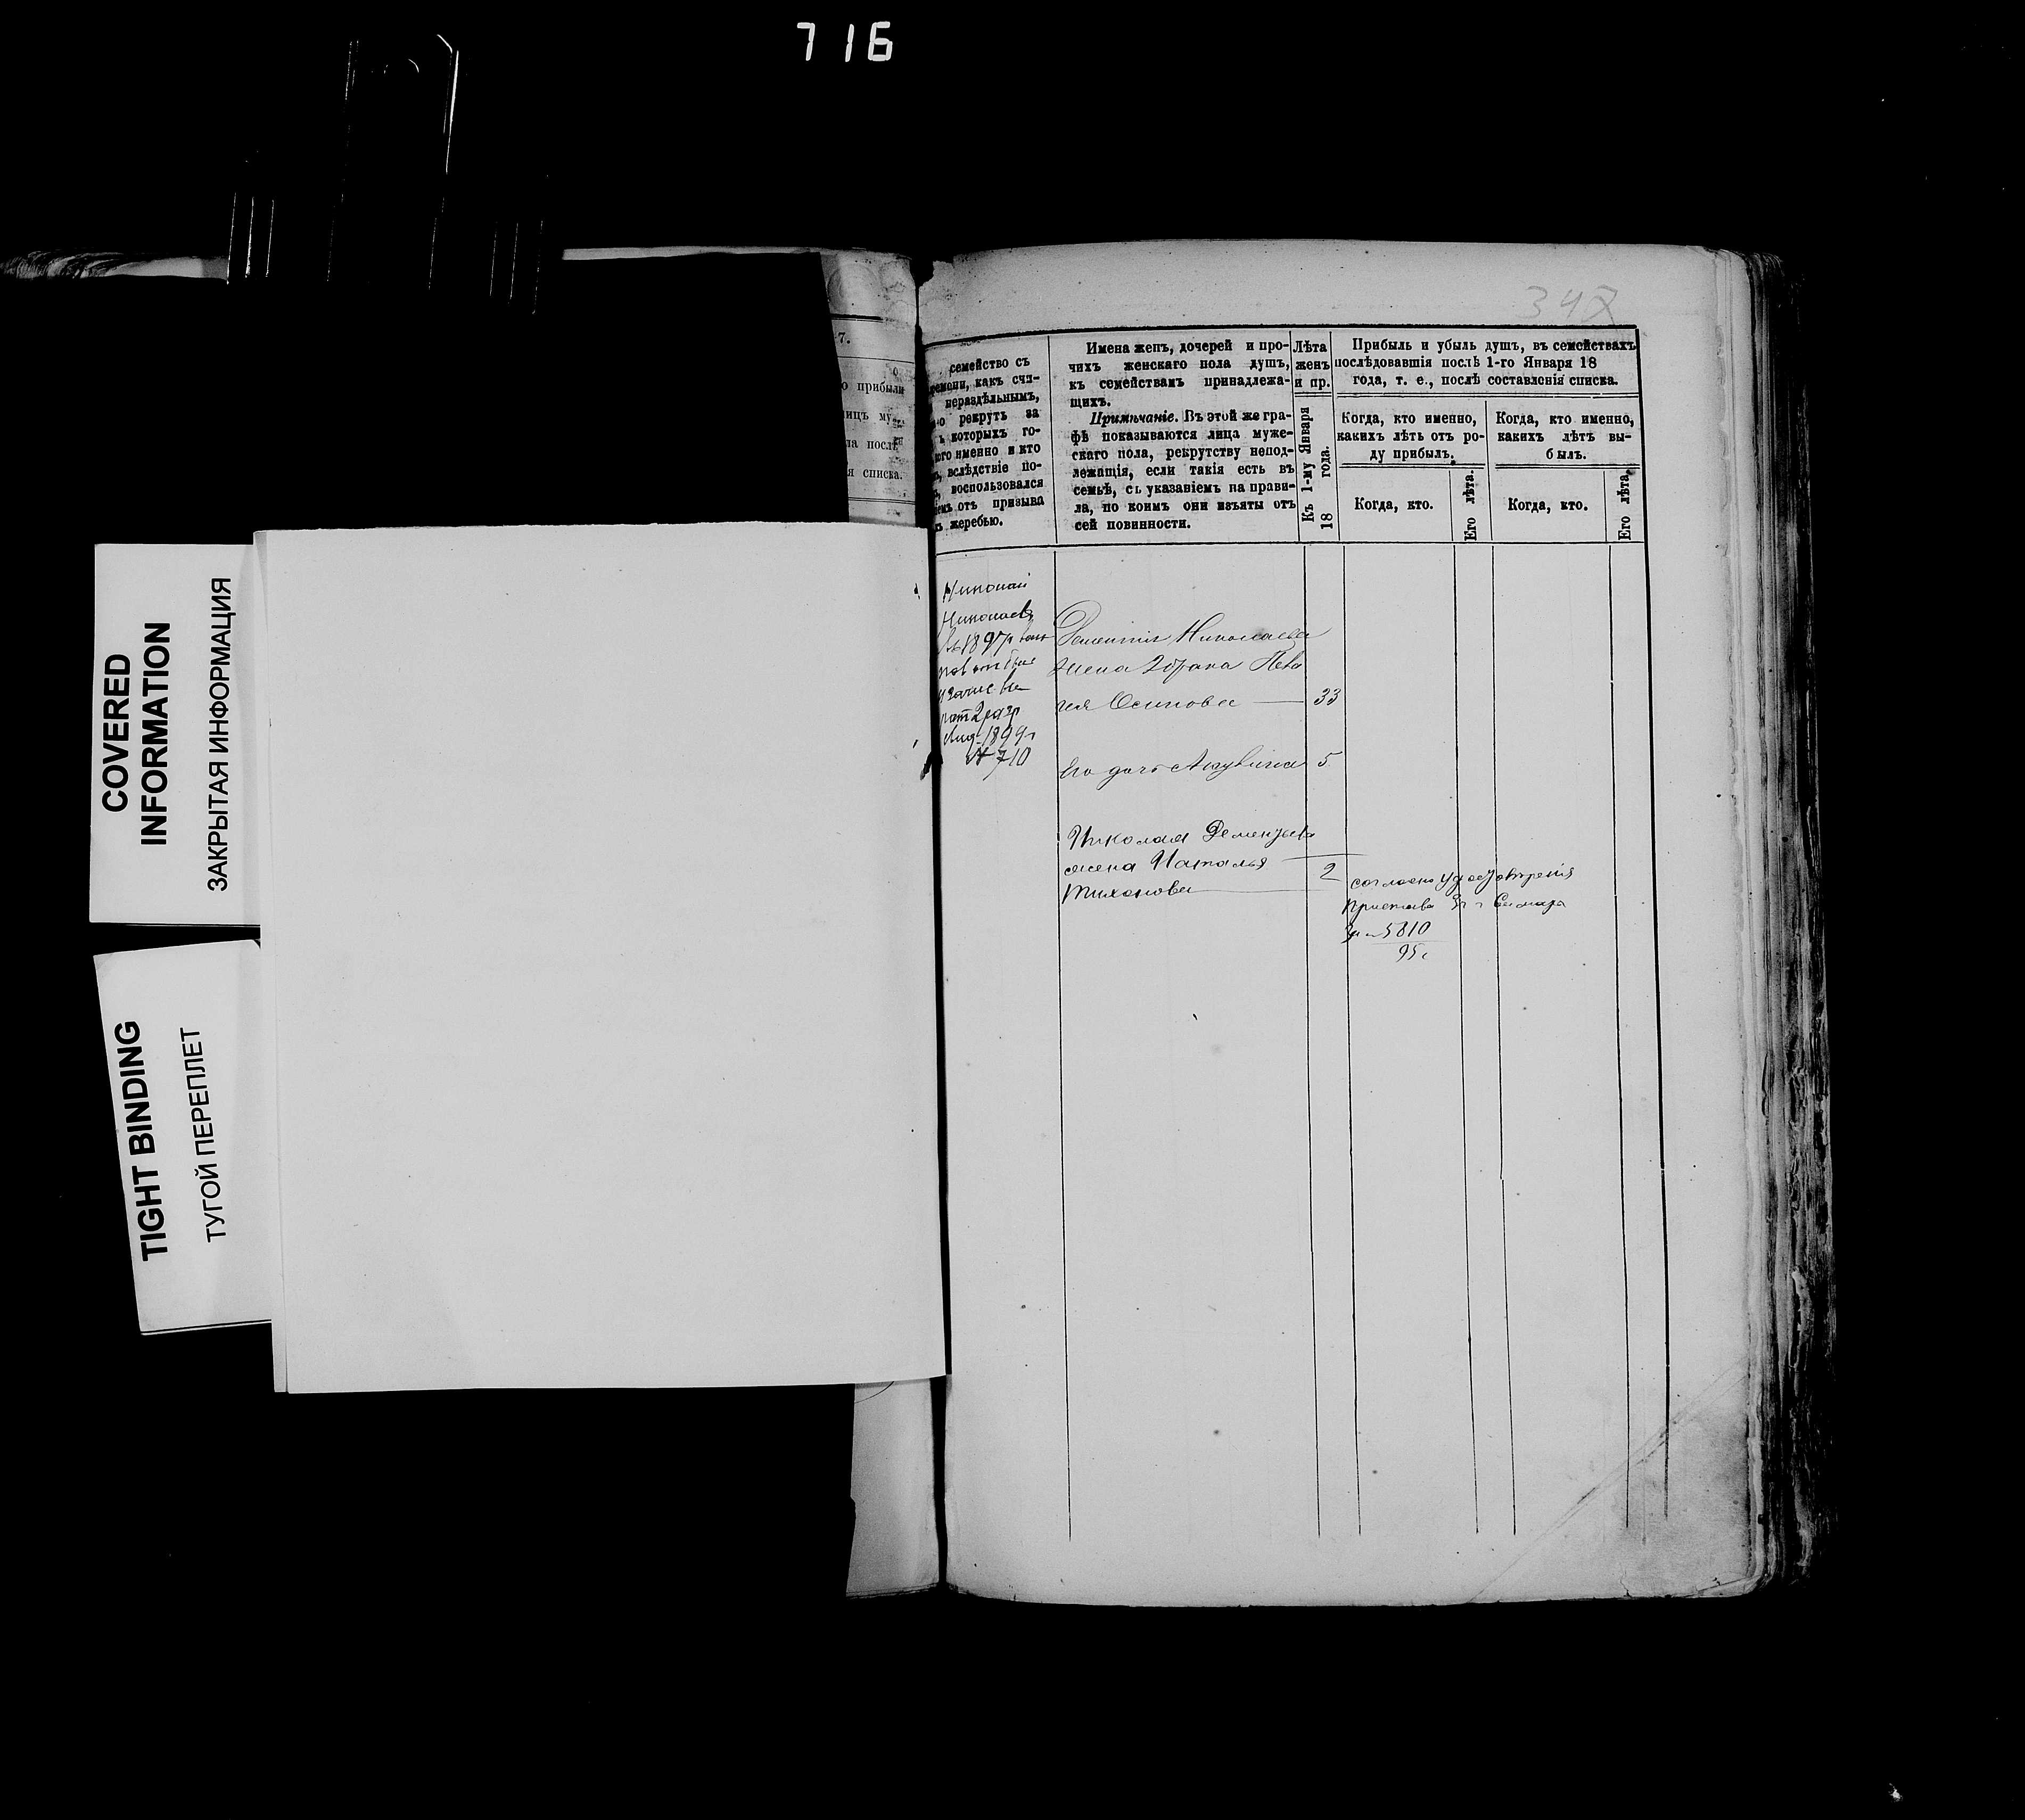 716
COVERED
INFORMATION
ЗАКРЫТАЯ ИНФОРМАЦИЯ
TIGHT BINDING
ТУГОЙ ПЕРЕПЛЕТ
7.
о прибыли
лицъ му
ла послѣ
я списка.
347
семейство съ
ремени, какъ счи-
нераздѣльнымъ,
рекрутъ за
которыхъ го-
кого именно и кто
вслѣдствіе по-
воспользовался
емъ отъ призыва
жеребью.
Имена женъ, дочерей и про-
чихъ женскаго пола душъ,
къ семействамъ принадлежа-
щихъ.
Примѣчаніе. Въ этой же гра-
фѣ показываются лица муже-
скаго пола, рекрутству непод-
лежащія, если такія есть въ
семьѣ, съ указаніемъ на прави-
ла, по коимъ они изъяты отъ
сей повинности.
Лѣта
женъ
и пр.
Къ 1-му Января
18 года.
Прибыль и убыль душъ, въ семействахъ
послѣдовавшія послѣ 1-го Января 18
года, т. е., послѣ составленія списка.
Когда, кто именно,
какихъ лѣтъ отъ ро-
ду прибылъ.
Когда, кто.
Его лѣта.
Когда, кто именно,
какихъ лѣтъ вы-
былъ.
Когда, кто.
Его лѣта.
Николай
Николаевъ
въ 1897г
1899г
№ 710
Дементія Николаева
жена 2 брака Пела
гея Осипова 33
Его дочь Акулина 5
Николая Дементьева
жена Наталья
Тихонова 2
согласно удостовѣренія
Пристава г Самары
за № 5810
95г